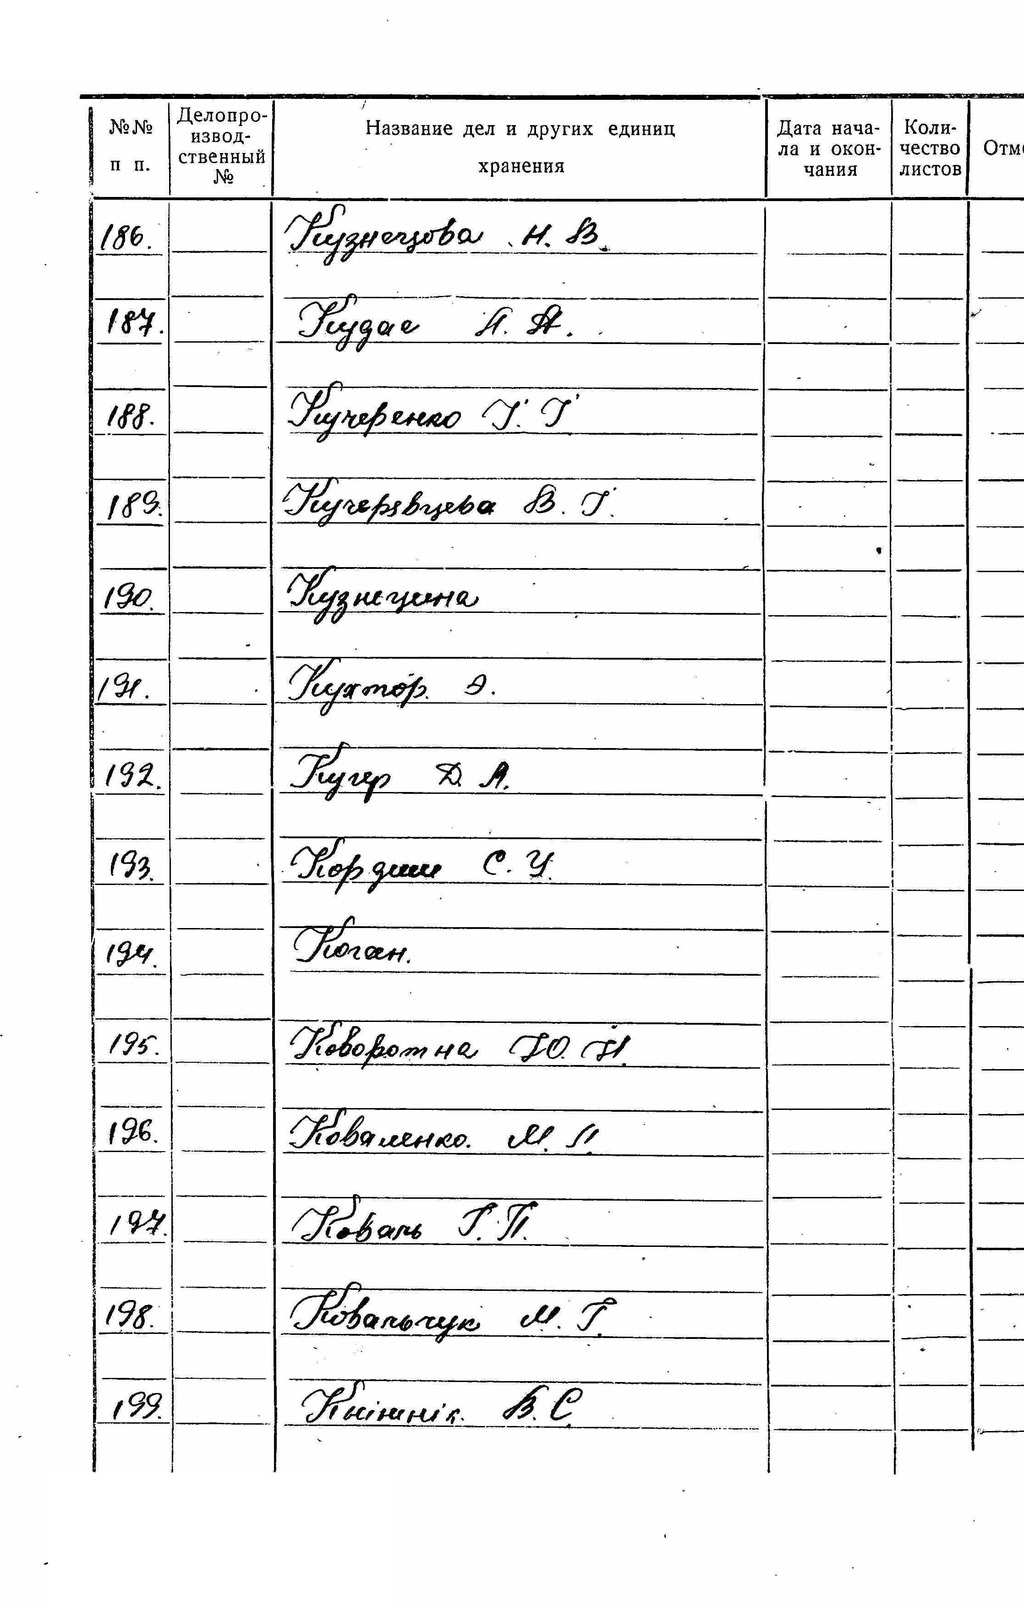 №№ п п. Делопроизводственный № Название дел и других единиц хранения Дата начала и окончания Количество листов Отм
186. Кузнецова Н. В.
187. Кудас А. А.
188. Кучеренко Г. Г.
189. Кучерявцева В. Г.
190. Кузнецина
191. Кухтор. Э.
192. Кугер Д. А.
193. Кордиш С. У.
194. Коган.
195. Коворотна Ю. Н.
196. Коваленко. М. П.
197. Коваль Г. П.
198. Ковальчук М. Г.
199. Книжнік. В. С.